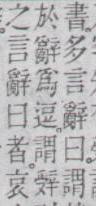 書多言辭曰謂
於辭爲逗謂辤
之言辭曰者哀